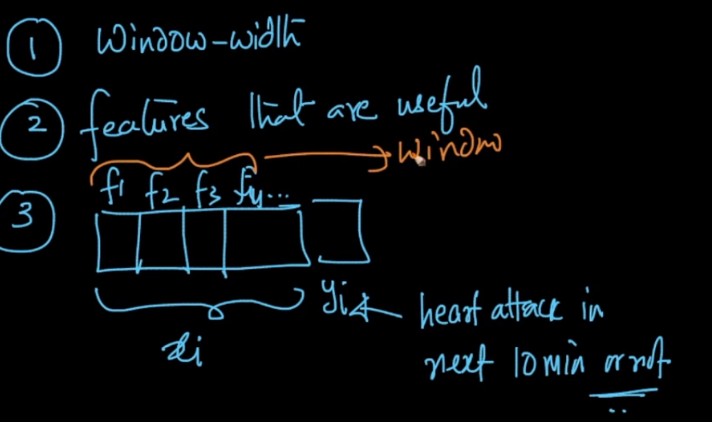 ① Window-width
② features that are useful
window
③ f1 f2 f3 f4...
xi
yi ← heart attack in
next 10 min or not